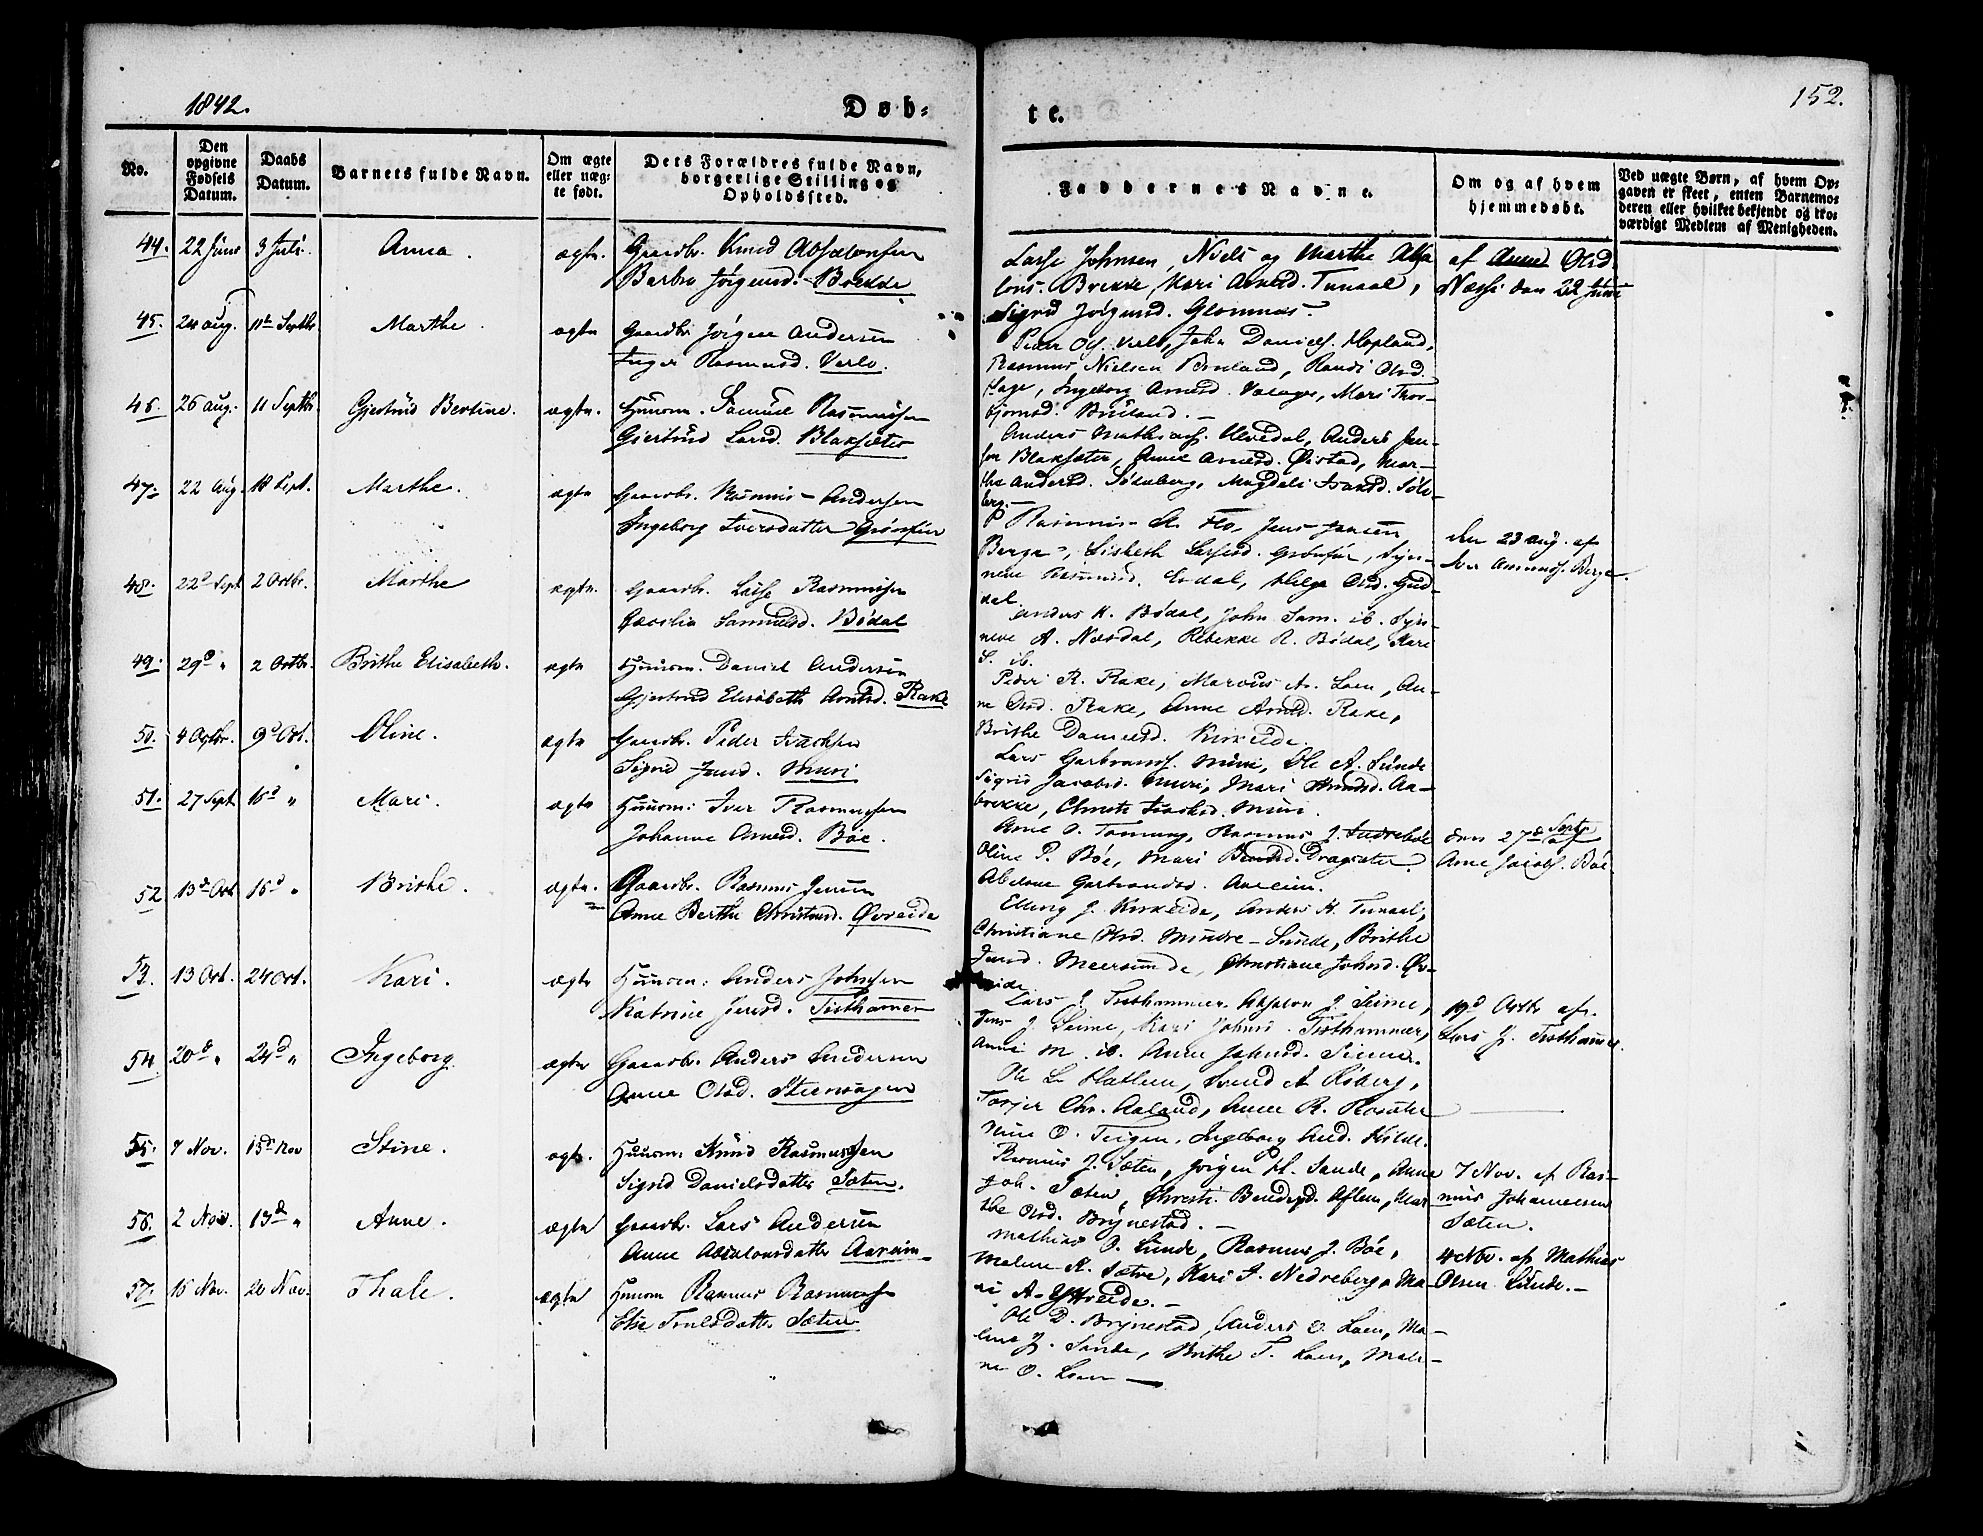 1842.
Døb-
te.
152.
No.
Den opgivne Fødsels Datum.
Daabs Datum.
Barnets fulde Navn.
Om ægte eller uægte født.
Dets Forældres fulde Navn, borgerlige Stilling og Opholdssted.
Faddernes Navne.
Om og af hvem hjemmedøbt.
Ved uægte Børn, af hvem Opgaven er skeet, enten Barnemoderen eller hvilket bekjendt og troværdigt Medlem af Menigheden.
44. 22 Juni 3 Juli. Anna. ægte. Gaardbr. Knud Absalonsen
Barbro Jørgensd. Brekke
Lasse Johnsen, Niels og Marthe Absa
lons. Brekke, Kari Arnesd. Tunaal,
Sigrid Jørgensd. Glomnæs.
af Anne Olsd.
Næsse den 22 Juni
45. 24 Aug. 11te Septbr. Marthe. ægte Gaardbr. Jørgen Andersen
Inger Rasmusd. Verlo.
Peder Ols. Verlo, John Daniels. Hopland,
Rasmus Nielsen Bruland, Randi Olsd.
Hage, Ingeborg Arnesd. Valager, Mari Thor-
bjørnsd. Bruland. -
46. 26 Aug. 11 Septbr. Gjertrud Bertine. ægte. Huusm. Samuel Rasmusen
Gjertrud Larsd. Blaksæter
Anders Mathias. Ulvedal, Anders Jen-
sen Blaksæter, Anne Arnesd. Øistad, Mar-
the Andersd. Sølvberg, Magdeli Isaksd. Sølv-
berg.
47. 22 Aug. 18 Sept. Marthe. ægte Gaardbr. Rasmus Andersen
Ingeborg Iversdatter Grønfur
Rasmus A. Flo, Jens Jensen
Berge, Lisbeth Larsesd. Grønfur, Syn-
neve Rasmusd. Erdal, Helga Olsd. Gud-
dal.
den 23 Aug. af
Iver Amunds. Berge.
48. 22d Sept. 2 Octbr. Marthe ægte. Gaardbr. Lasse Rasmusen
Cæcilia Samuelsd. Bødal
Anders K. Bødal, John Sam. ib. Syn-
neve A. Næsdal, Rebekke R. Bødal, Kari
S. ib.
49. 29d " 2 Octbr. Brithe Elisabeth. ægte Huusm. Daniel Andersen
Gjertrud Elisabeth Arnesd. Rake
Peder R. Rake, Marcus A. Loen, An-
ne Olsd. Rake, Anne Arnesd. Rake,
Brithe Danielsd. Kirkeide.
50. 4 Octbr. 9d Oct. Oline. ægte Gaardbr. Peder Isachsen
Sigrid Jensd. Muri
Lars Garbrands. Muri, Ole A. Sunde
Sigrid Jacobsd. Muri, Mari Knudsd. Aa-
brekke, Christi Isachsd. Muri.
51. 27 Sept. 16d " Mari. ægte Huusm: Iver Rasmusen
Johanne Arnesd. Bøe.
Arne O. Tonning, Rasmus J. Indrebøe
Oline P. Bøe, Mari Berntsd. Dragsæter.
Abelone Garbrandsd. Aareim.
den 27de Sept. af
Arne Jacobs. Bøe
52 13d Oct 16d " Brithe. ægte. Gaardbr. Rasmus Jensen
Anne Berthe Christensd. Øvreeide
Elling J. Kirkeide, Anders K. Tunaal,
Christiane Olsd. Mindre-Sunde, Brithe
Jensd. Meersunde, Christiane Johnsd. Øv-
reeide.
53. 13 Oct. 24 Oct. Kari. ægte Huusm: Anders Johnsen
Katrine Jensd. Tisthamer
Lars J. Tisthammer, Absalon J. Seime,
Jens J. Seime, Kari Johnsd. Tisthammer,
Anne M. ib. Anne Johnsd. Seime.
19d Octbr af.
Lars J. Tisthamer.
54. 20d " 24d " Ingeborg ægte Gaardbr. Anders Andersen
Anne Olsd. Steensagen
Ole L. Hatlem, Svend A. Roberg,
Torjer Chr. Aaland, Anne R. Roset
O. Teigen, Ingeborg And. Hilde.
55. 7 Nov. 13d Nov Stine. ægte. Huusm: Knud Rasmussen
Sigrid Danielsdatter Sæten.
Rasmus J. Sæten, Jørgen M. Sande, Anne
Joh. Sæten, Christi Bendixd. Aflem, Mar
the Olsd. Brynestad. -
7 Nov. af Ras-
mus Johannesen
Sæten.
56. 2 Nov. 13d " Anne. ægte Gaardbr. Lars Andersen
Anne Absalonsdatter Aareim
Mathias O. Sunde, Rasmus J. Bøe,
Malene K. Sætre, Kari J. Nedreberg, Ma-
ri A. Ytreeide. -
4 Nov. af Mathias
Olsen Sunde. -
57. 15 Nov. 20 Nov. Thale. ægte Huusm Rasmus Rasmusen
Else Truelsdatter Sæten
Ole D. Brynestad, Anders O. Loen, Ma-
lene J. Sande, Brithe T. Loen, Male-
ne O. Loen -